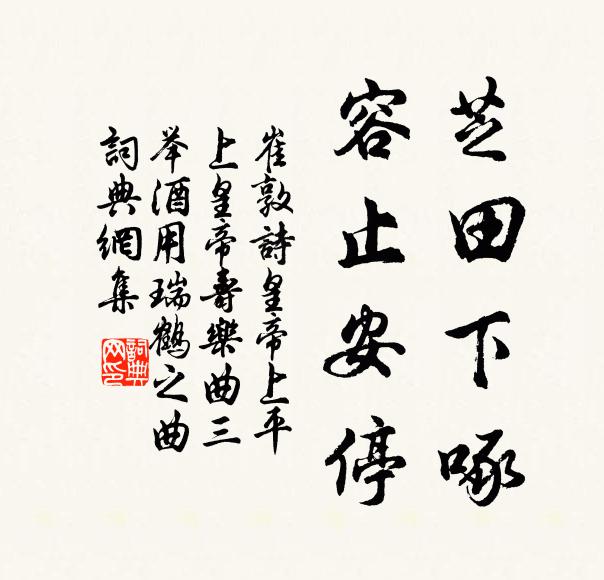 芝田下啄
容止安停
崔敦詩皇帝上平
上皇帝壽樂曲三
举酒用瑞鶴之曲
詞典網集
詞典網印